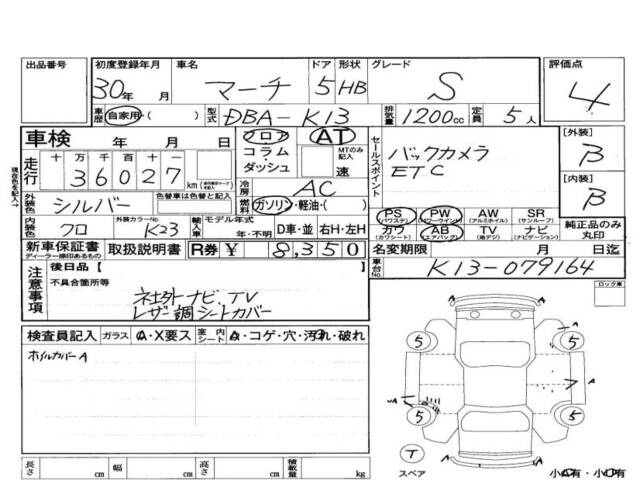 出品番号 初度登録年月 車名 ドア 形状 グレード 評価点
30年 月 マーチ 5 HB S 4
車歴 自家用・( ) 型式 DBA-K13 排気量 1200cc 定員 5人
車検 年 月 日 フロア AT
コラム MTのみ記入
ダッシュ 速
走行 十 万 千 百 十 一
36027 km
現在色を記入→
冷房 AC
外装色 シルバー 色替車は色替と記入 燃料 ガソリン・軽油・( )
内装色 クロ 外装カラーNo. K23 輸入車 モデル年式 年・不明 D車・並 右H・左H
セールスポイント
バックカメラ
ETC
[外装] B
[内装] B
PS (パワステ) PW (パワーウインドウ) AW (アルミホイル) SR (サンルーフ)
カワ (カワシート) AB (エアバッグ) TV (地デジ) ナビ (ナビゲーション) 純正品のみ丸印
新車保証書 ディーラー捺印あるもの 取扱説明書 R券 ¥ 8,350 名変期限 月 日迄
車台No. K13-079164
注意事項 後日品[ ]
不具合箇所等
社外ナビ、TV
レザー調シートカバー
ロック車
検査員記入 ガラス A・X要ス 室内シート A・コゲ・穴・汚れ・破れ
ホイルカバーA
5 5
A A
A
5 5
T
スペア 小A有・小U有
長さ cm 幅 cm 高さ cm 積載量 kg